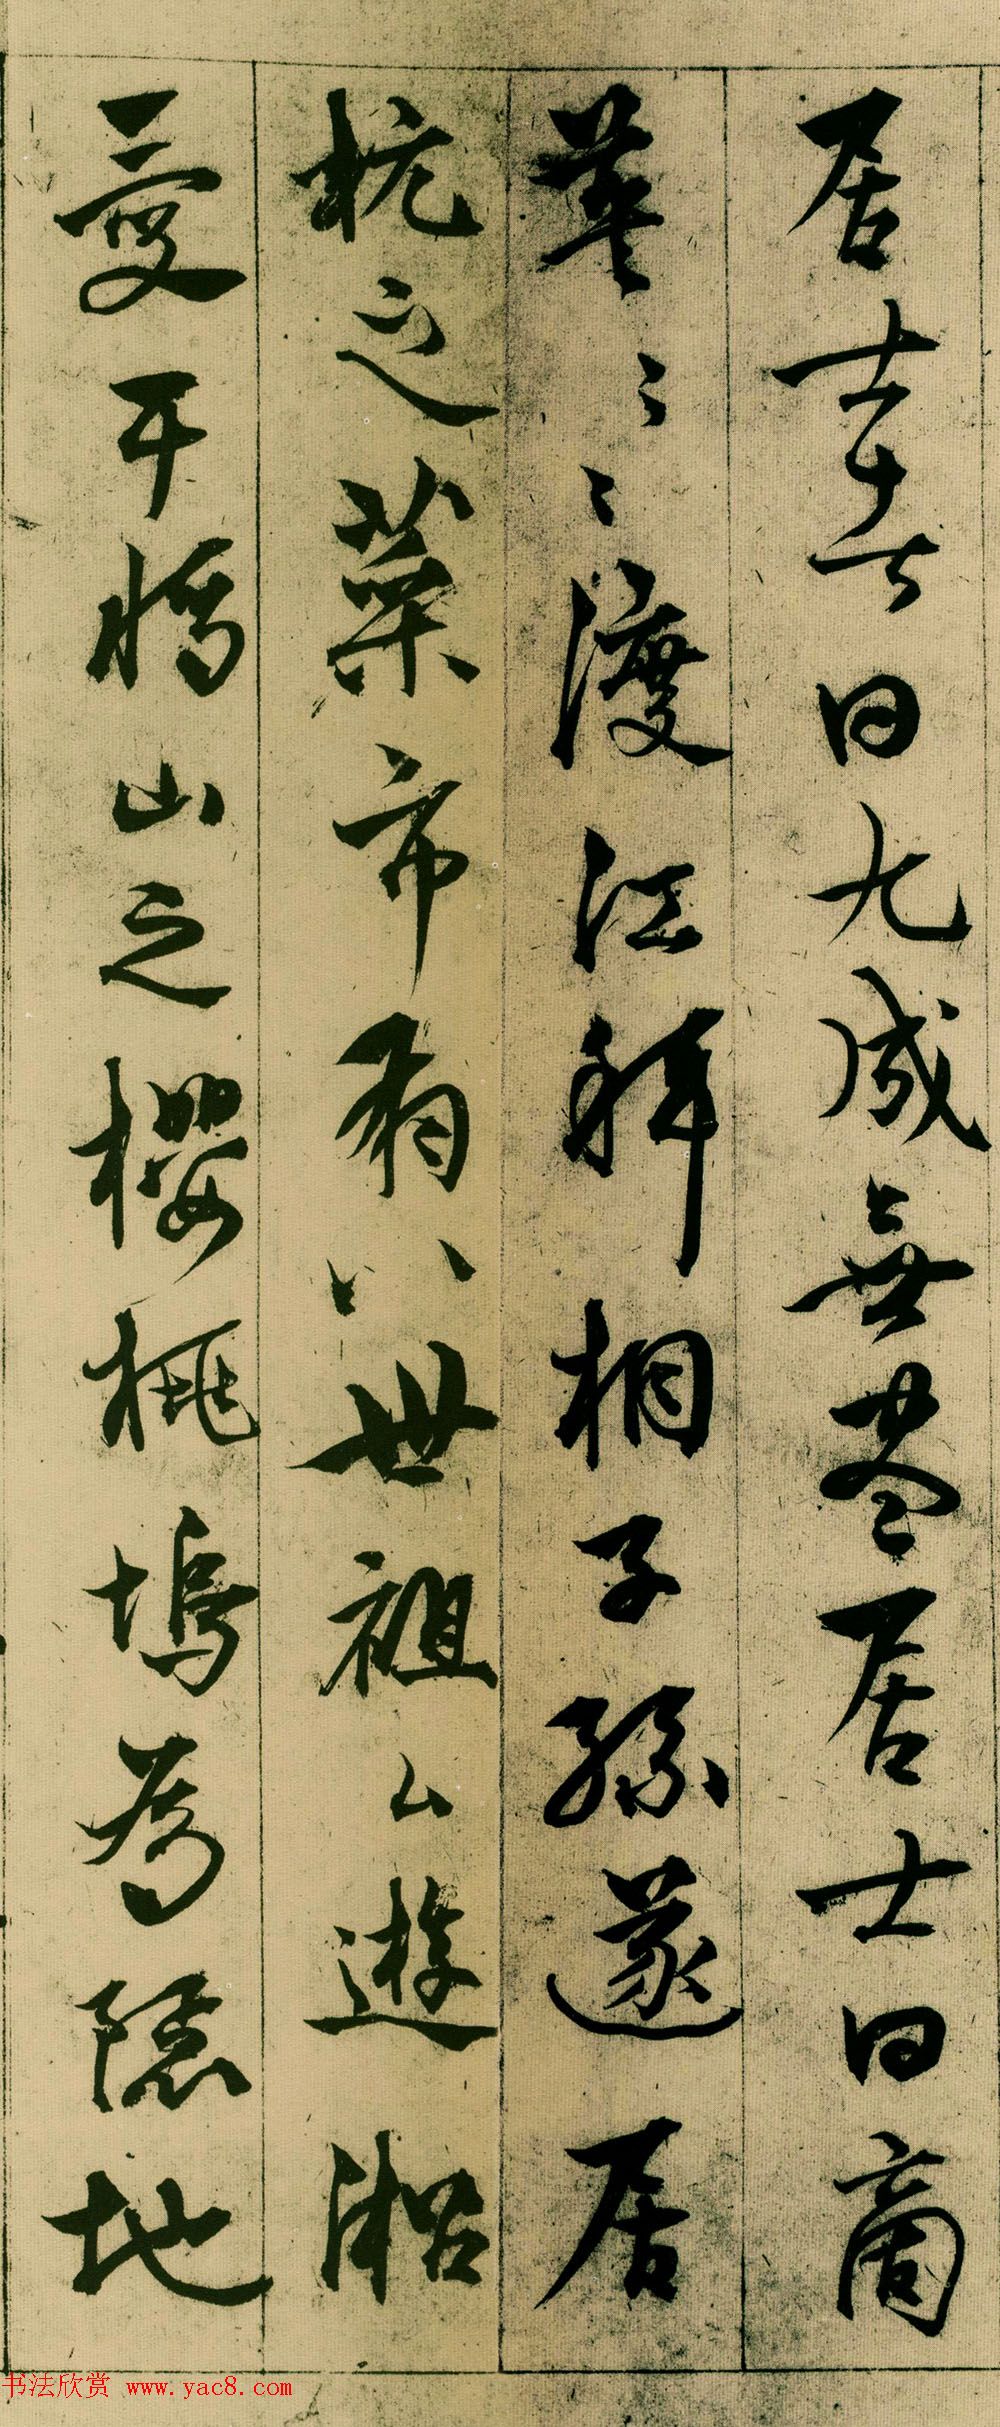 居士曰九成無尽居士曰商
英〻〻渡江拜相子孫遂居
杭之菜市有八世祖公遊淞
愛干將山之櫻桃塢為隱地
书法欣赏 www.yac8.com